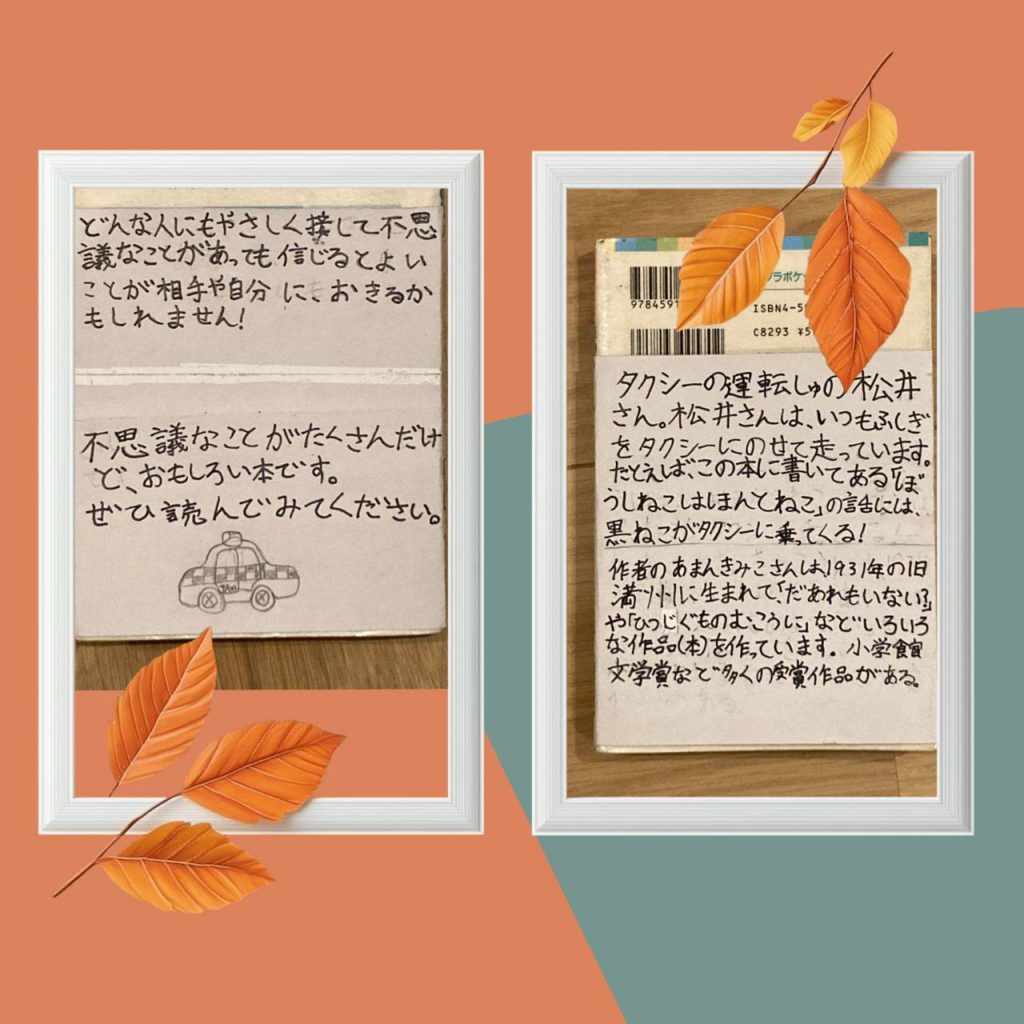 どんな人にもやさしく接して不思
議なことがあっても信じるとよい
ことが相手や自分に、おきるか
もしれません!
不思議なことがたくさんだけ
ど、おもしろい本です。
ぜひ読んでみてください。
プラポケッ
9784591
ISBN4-5
C8293 ¥5
タクシーの運転しゅの松井
さん。松井さんは、いつもふしぎ
をタクシーにのせて走っています。
たとえば、この本に書いてある「ぼ
うしねこはほんとねこ」の話には、
黒ねこがタクシーに乗ってくる!
作者のあまんきみこさんは、1931年の旧
満州に生まれて、「だあれもいない?」
や「ひつじぐものむこうに」などいろいろ
な作品(本)を作っています。小学館
文学賞など多くの受賞作品がある。